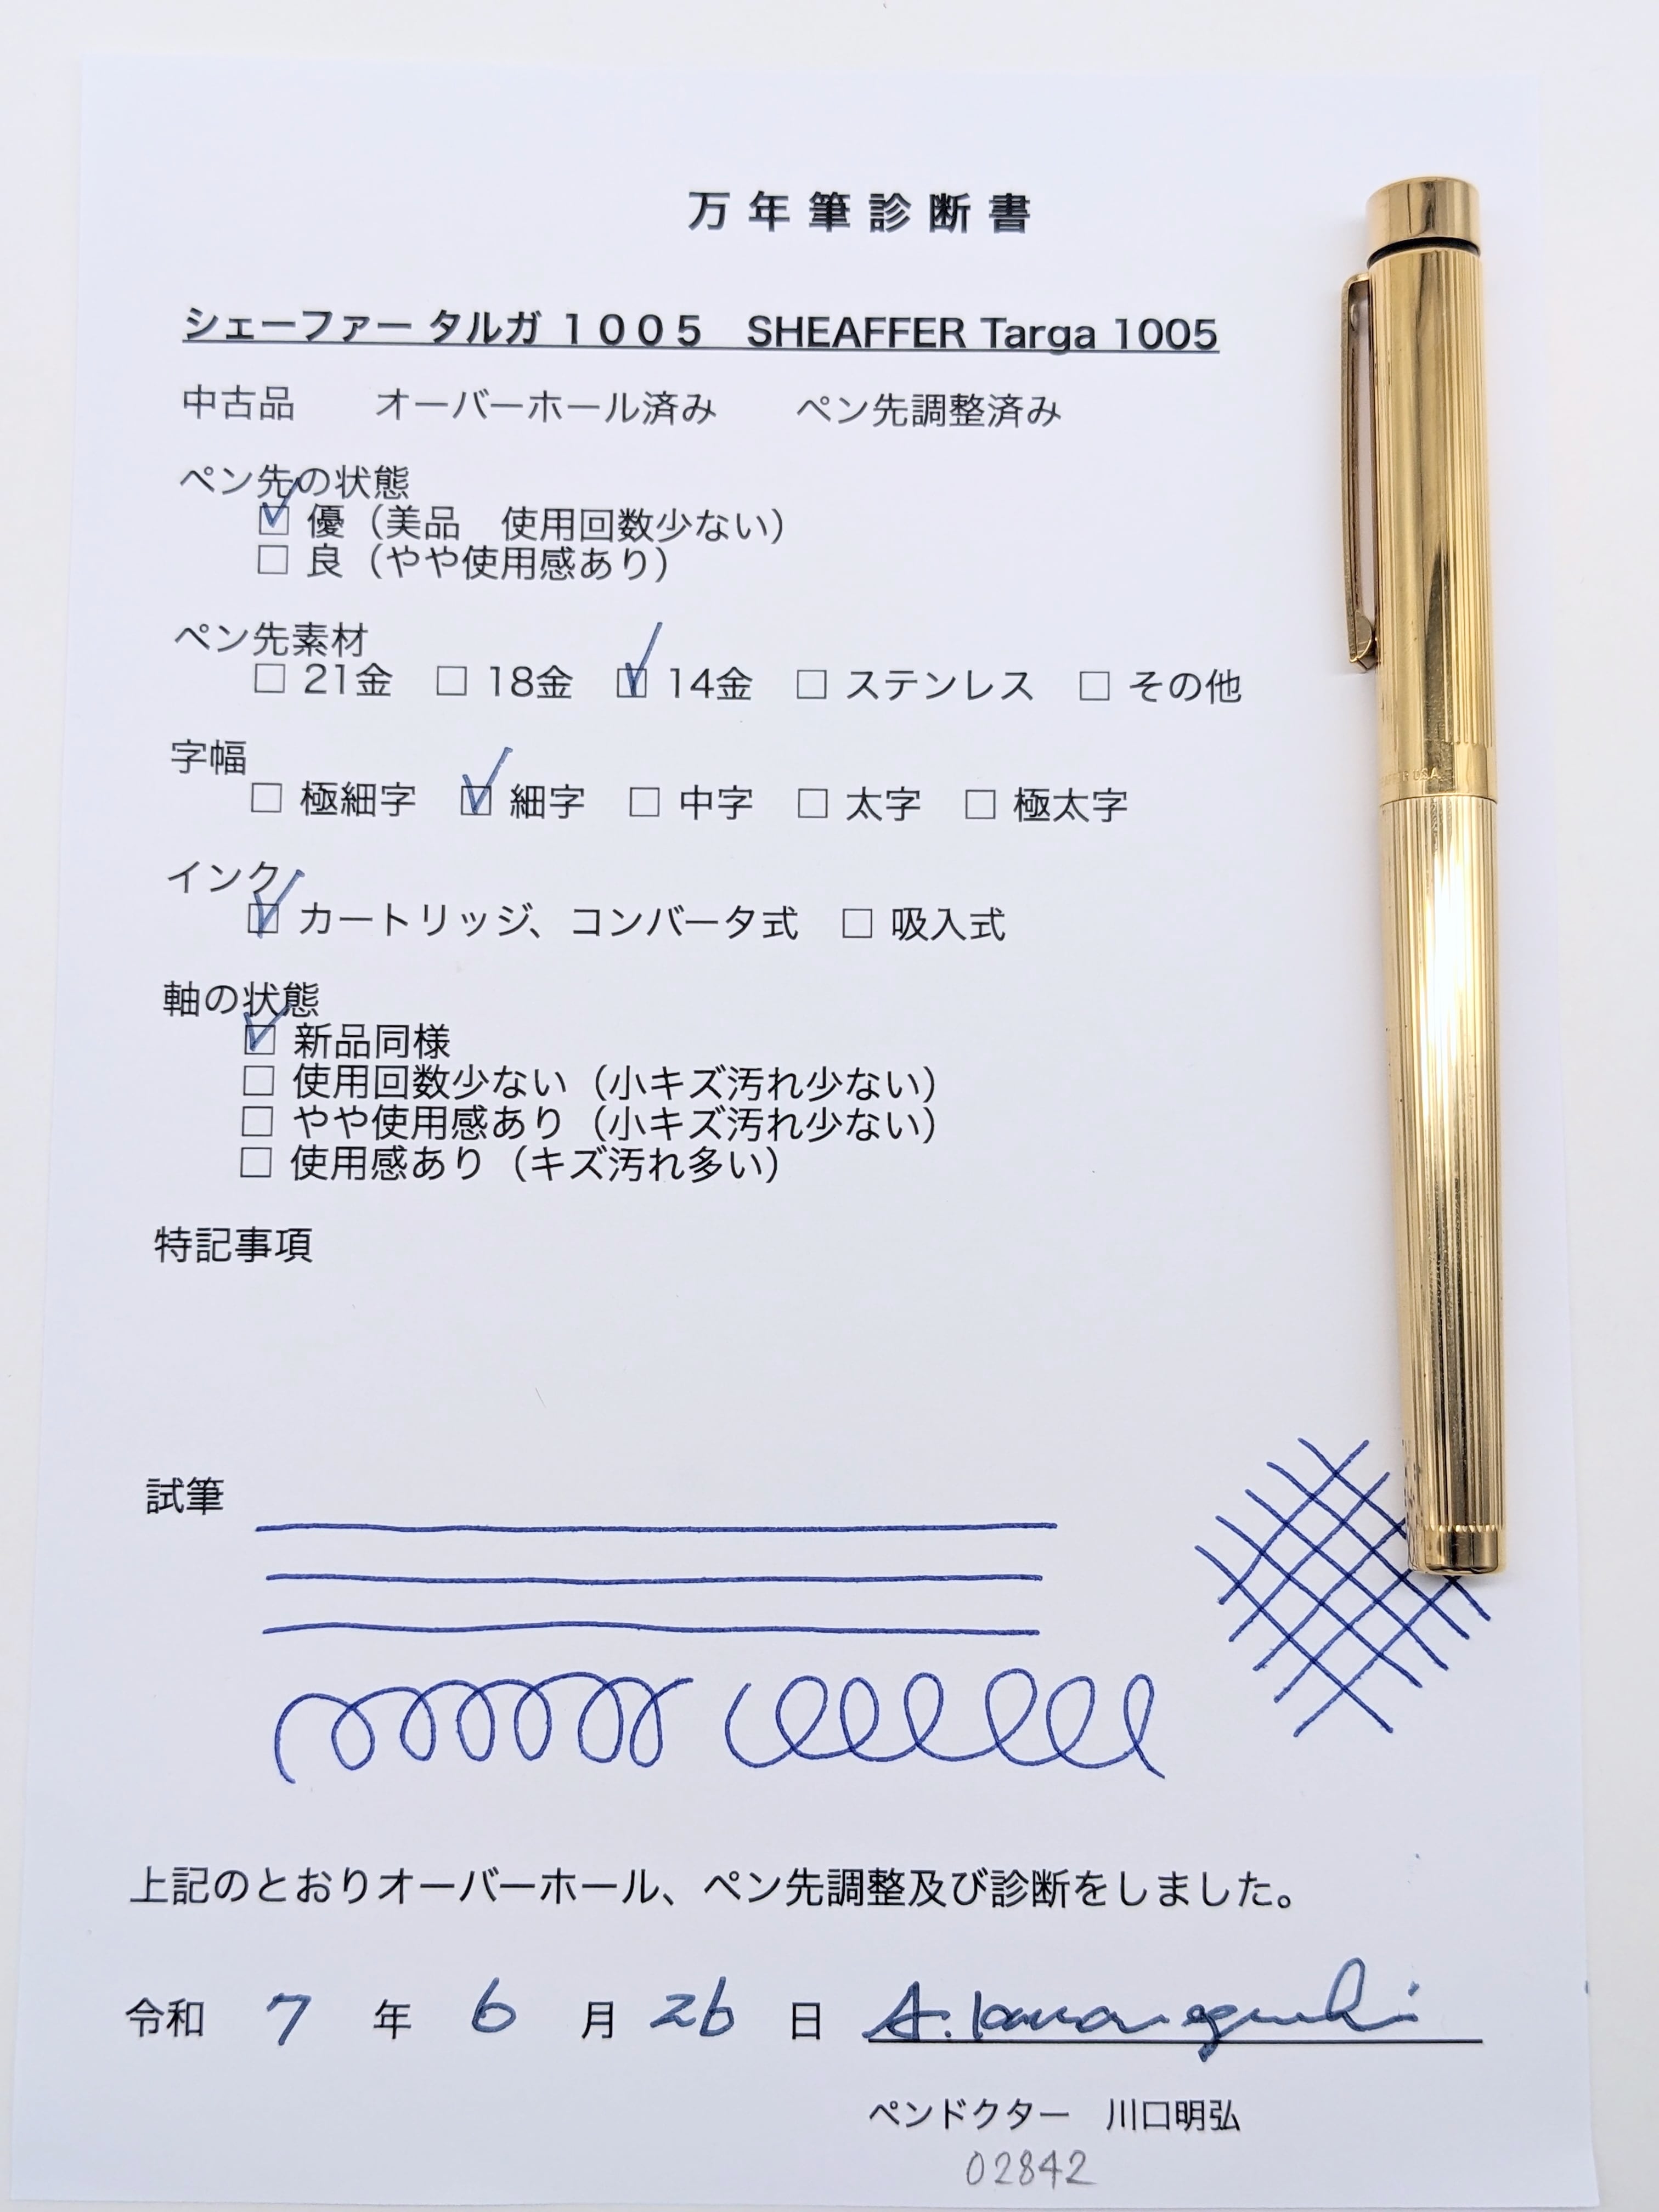 万年筆診断書
シェーファー タルガ 1005　SHEAFFER Targa 1005
中古品　オーバーホール済み　ペン先調整済み
ペン先の状態
☑ 優（美品　使用回数少ない）
□ 良（やや使用感あり）
ペン先素材
□ 21金　□ 18金　☑ 14金　□ ステンレス　□ その他
字幅
□ 極細字　☑ 細字　□ 中字　□ 太字　□ 極太字
インク
☑ カートリッジ、コンバータ式　□ 吸入式
軸の状態
☑ 新品同様
□ 使用回数少ない（小キズ汚れ少ない）
□ やや使用感あり（小キズ汚れ少ない）
□ 使用感あり（キズ汚れ多い）
特記事項
試筆
上記のとおりオーバーホール、ペン先調整及び診断をしました。
令和 7 年 6 月 26 日 A. Kawaguchi
ペンドクター　川口明弘
02842